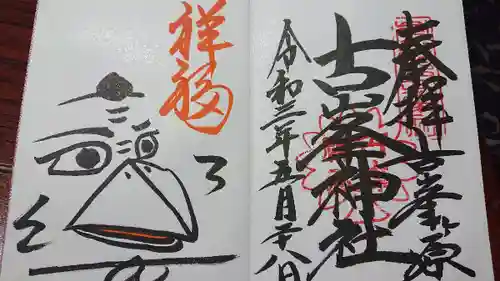 奉拝
古峯原
古峯神社
令和三年五月十八日
祥福